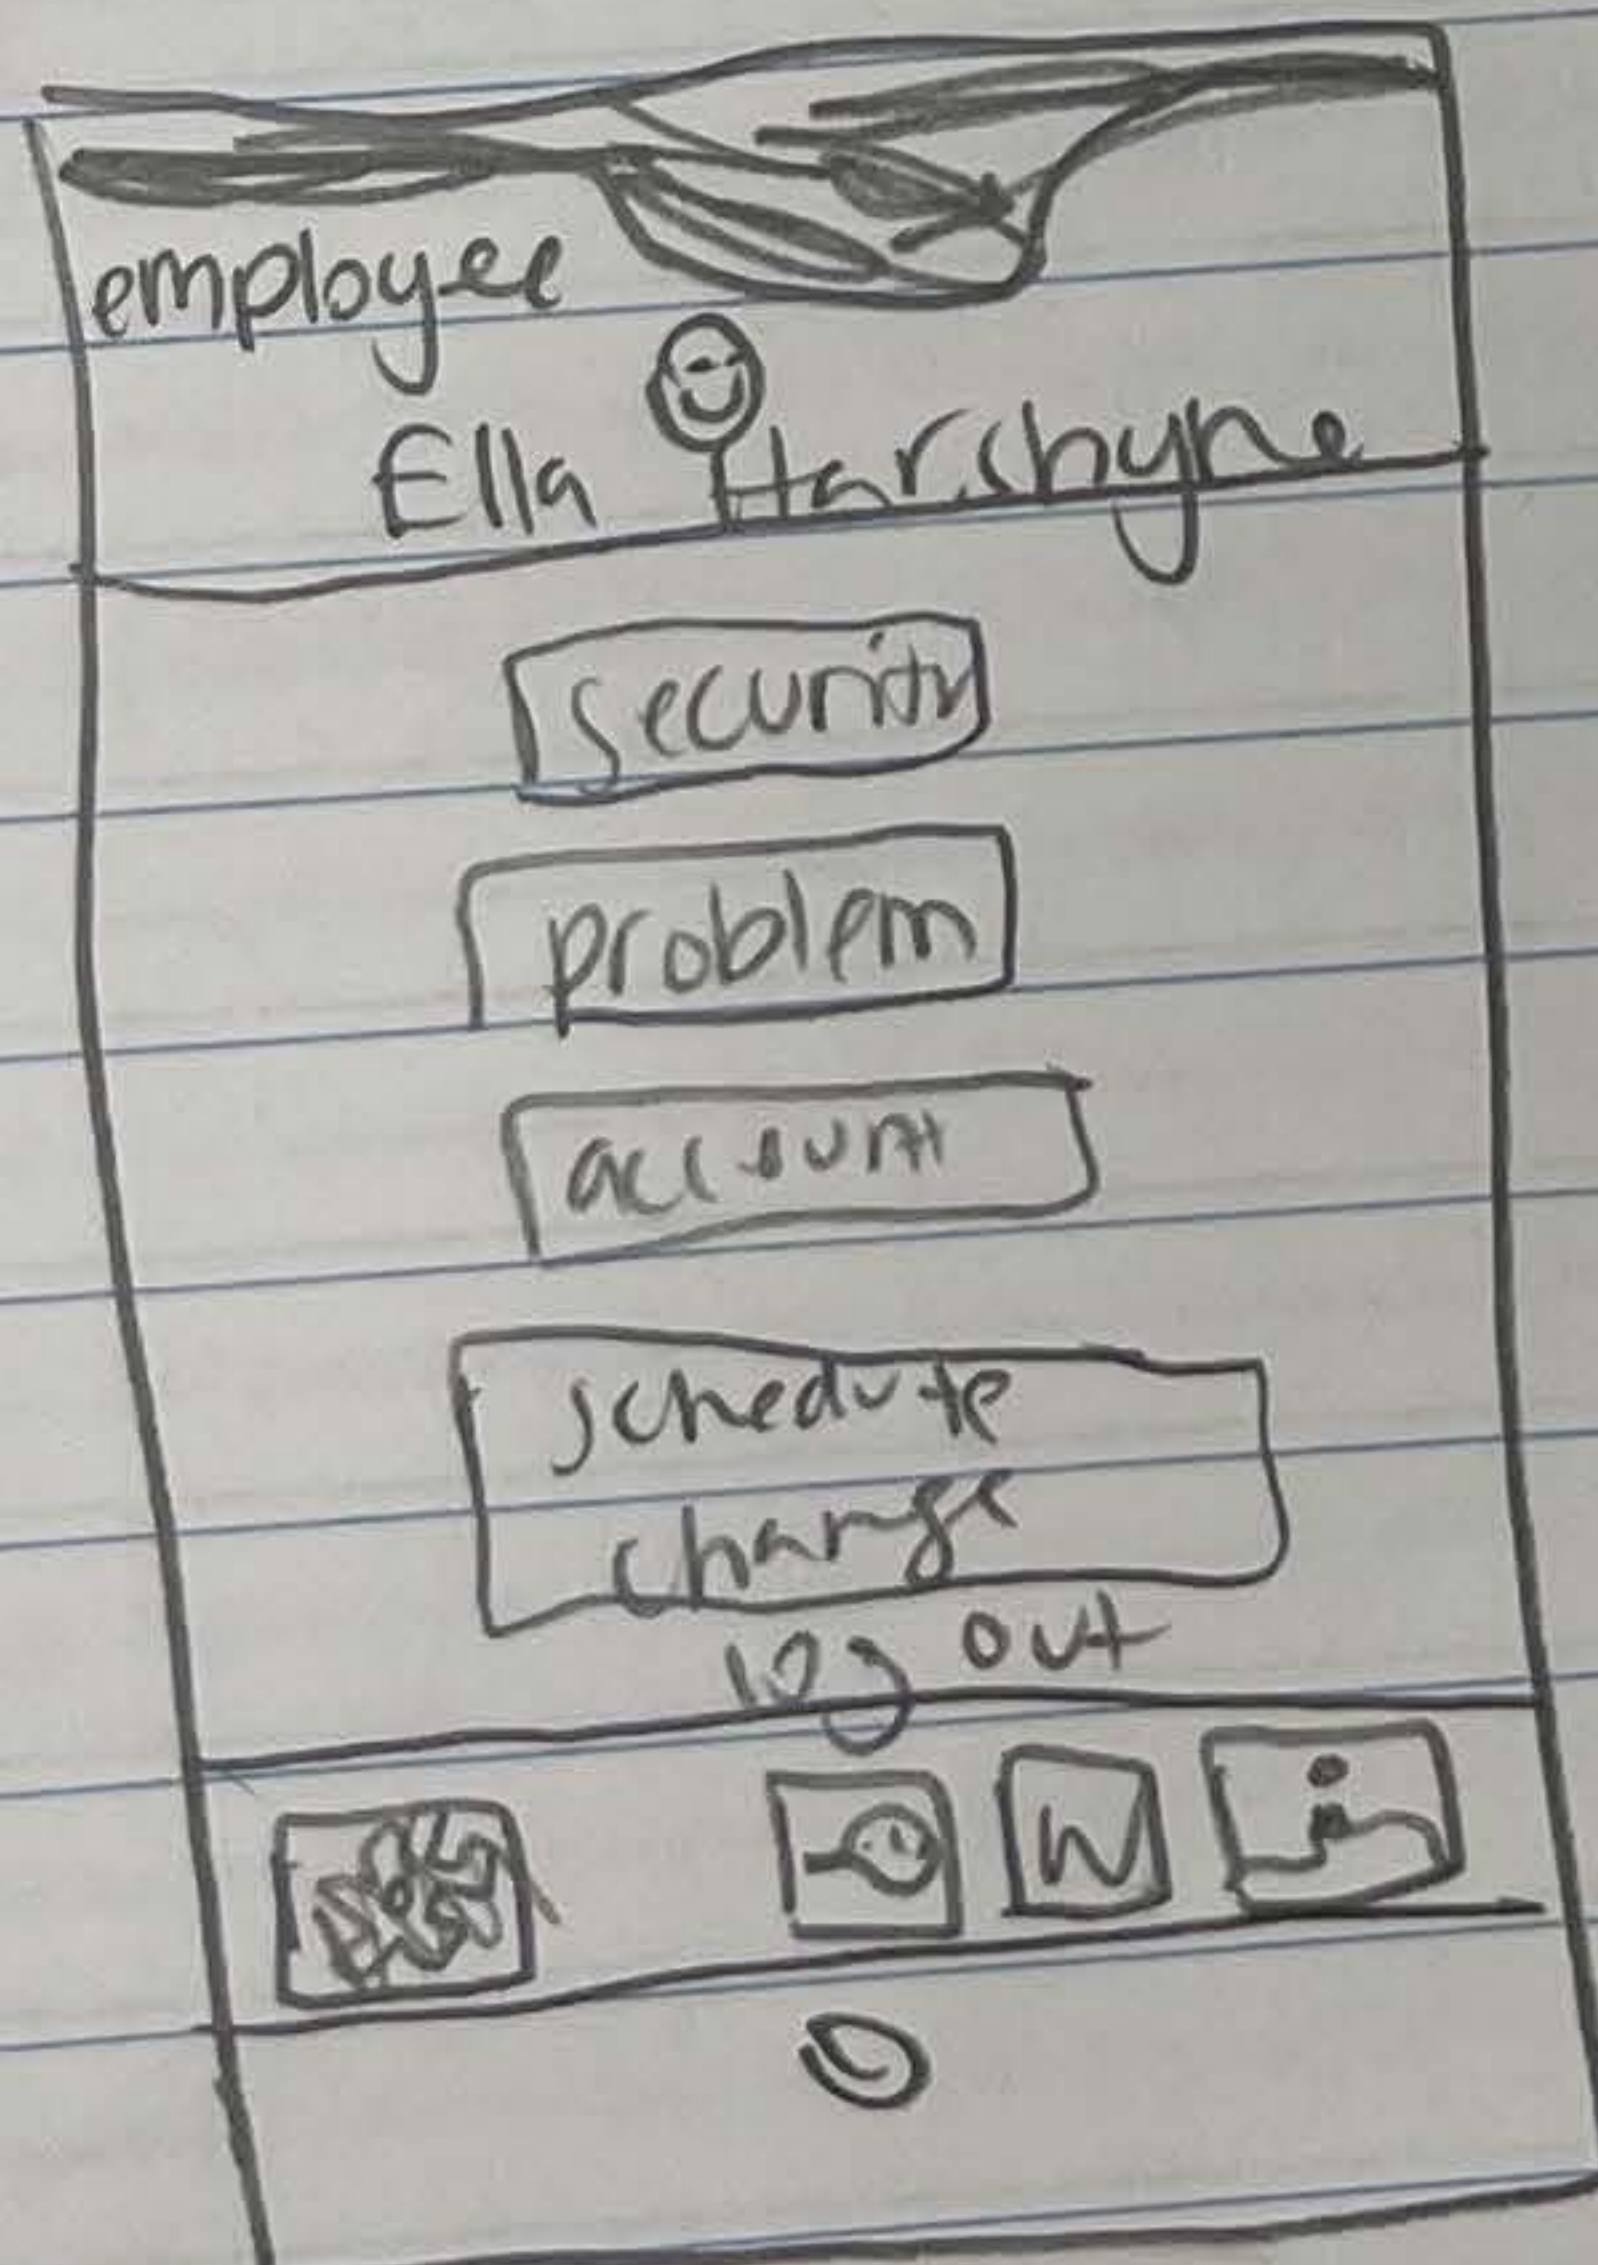 employee
Ella Harshyne
security
problem
account
schedule
change
log out
W